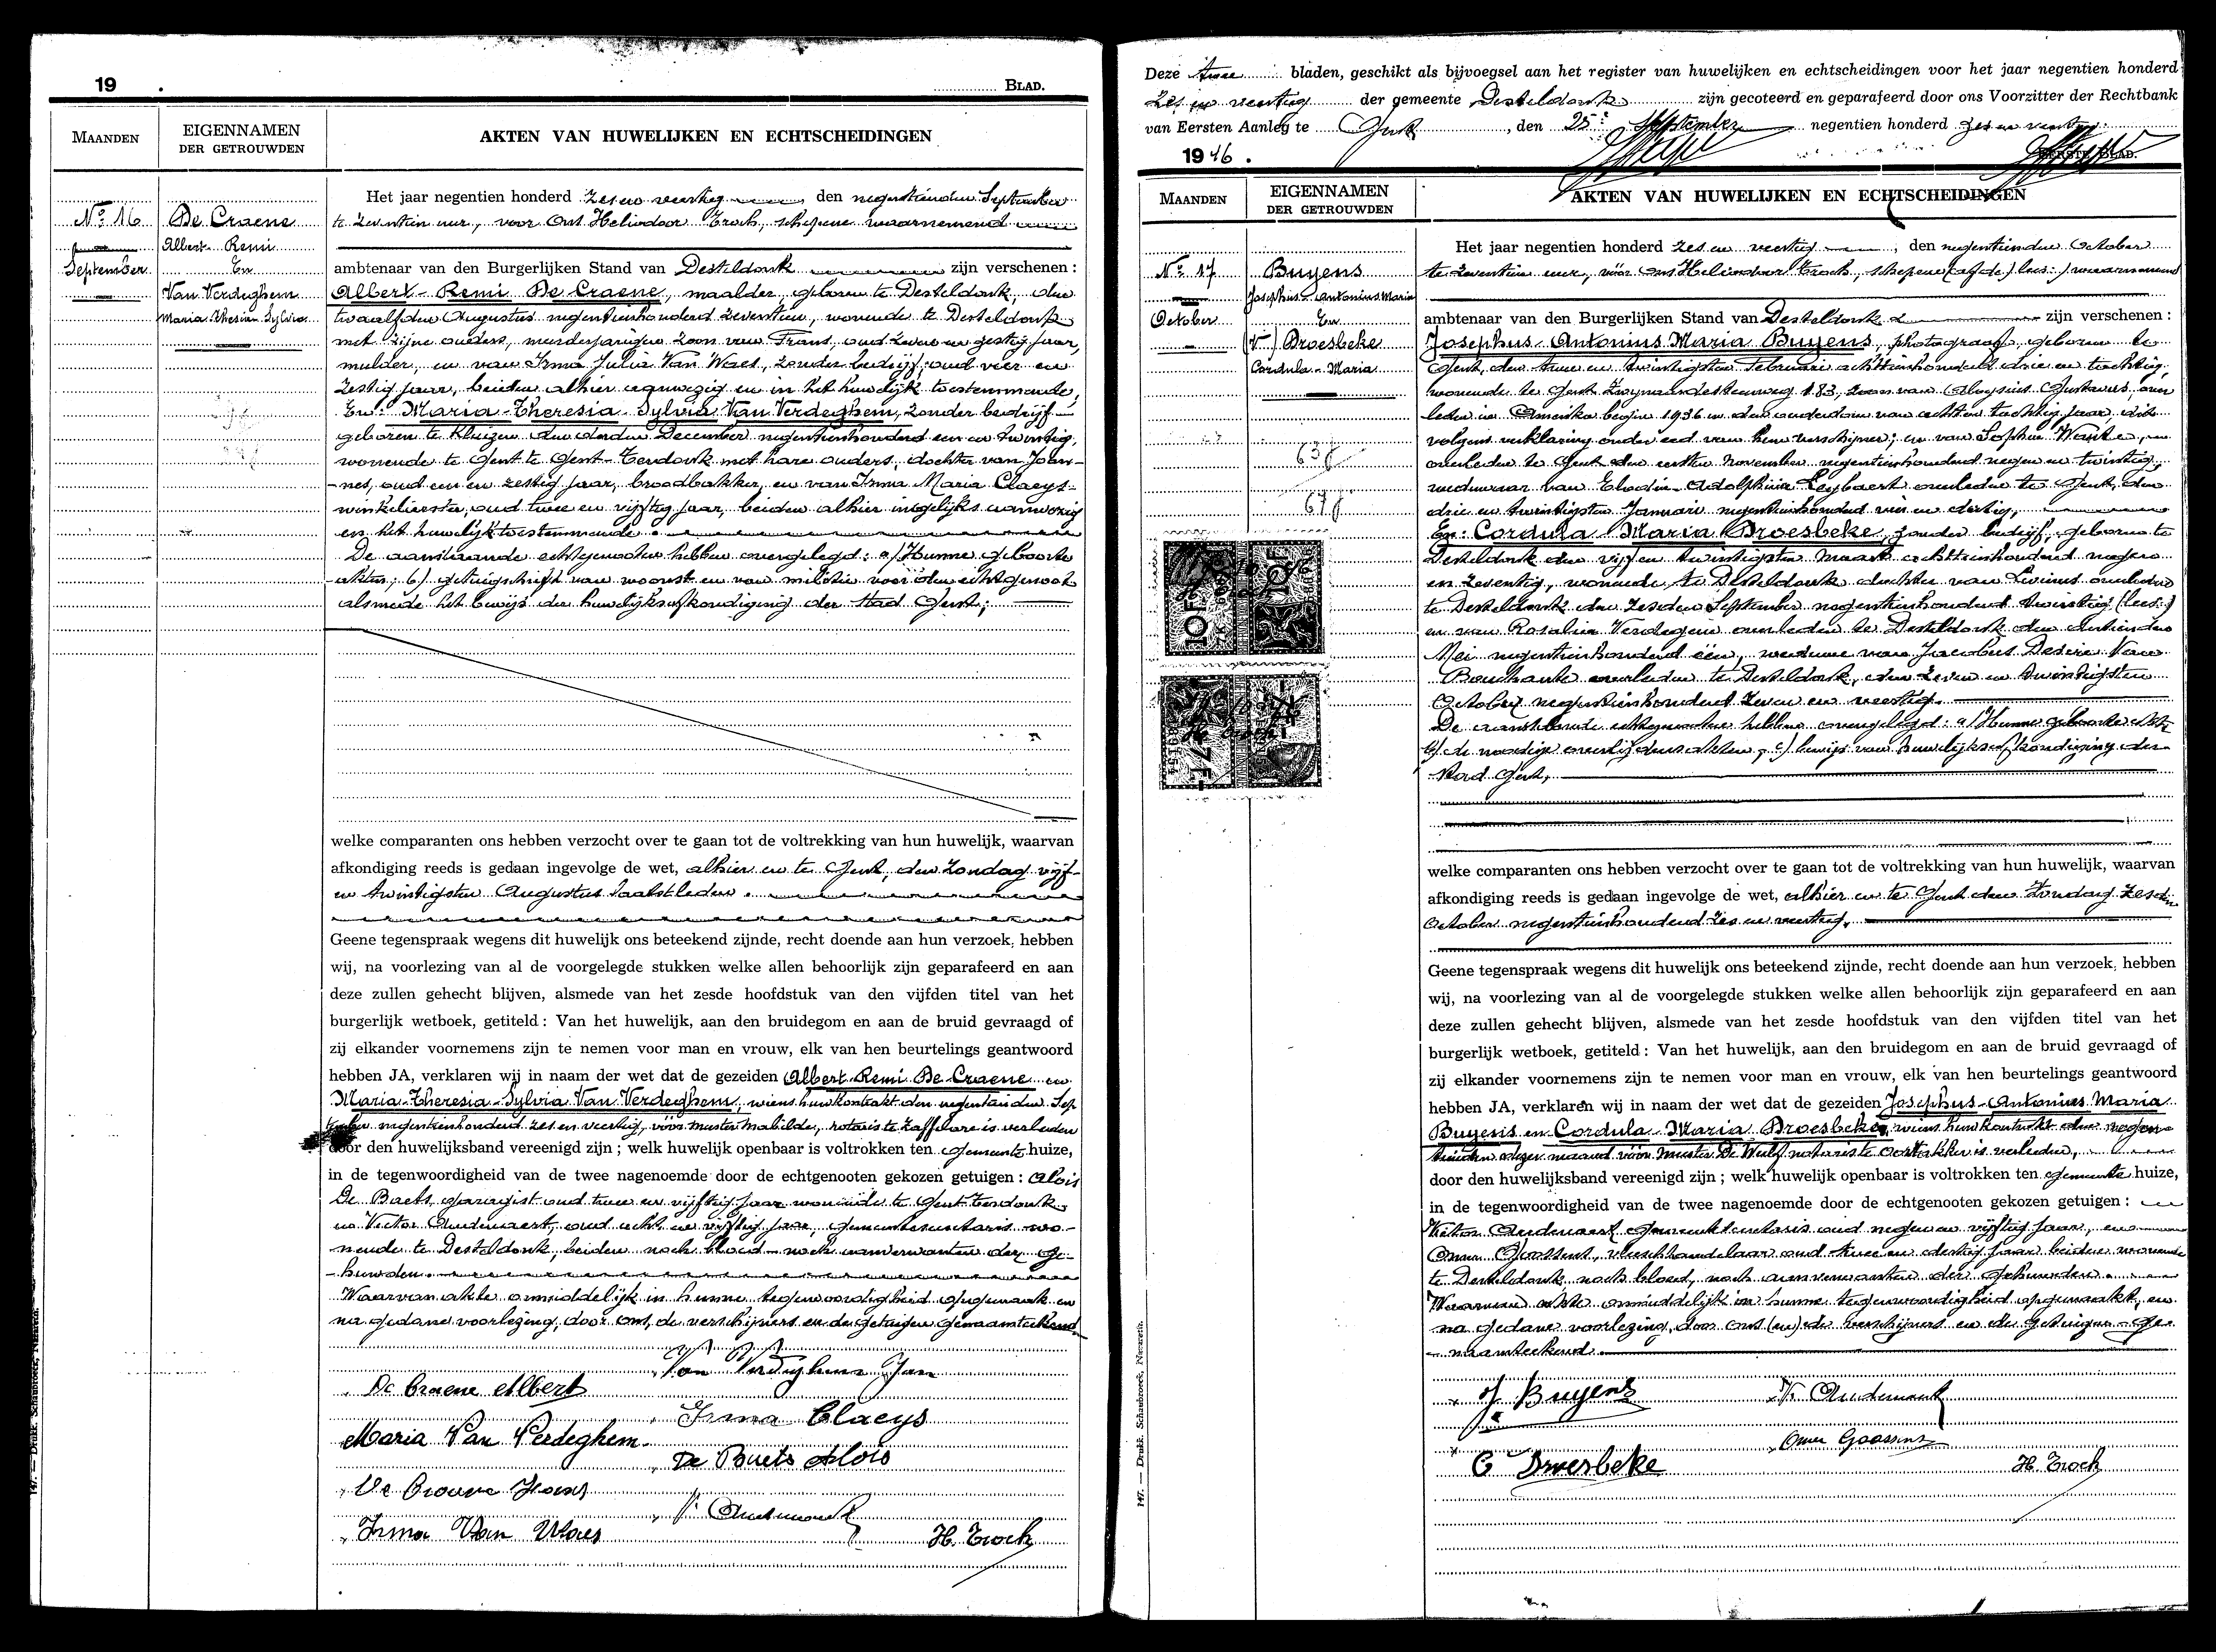 19 .
BLAD.
MAANDEN
EIGENNAMEN
DER GETROUWDEN
AKTEN VAN HUWELIJKEN EN ECHTSCHEIDINGEN
No 16
September
De Craene
Albert - Remi
En
Van Verdeghem
Maria Theresia Sylvia
Het jaar negentien honderd zes en veertig, den negentienden September
te zeventien uur, voor Ons Heliodoor Troch, schepene waarnemend
ambtenaar van den Burgerlijken Stand van Desteldonk zijn verschenen :
Albert - Remi De Craene, maalder, geboren te Desteldonk, den
twaalfden Augustus negentienhonderd zeventien, wonende te Desteldonk
met zijne ouders, meerderjarigen zoon van Frans, oud zeven en zestig jaar,
mulder, en van Irma Julia Van Waes, zonder bedrijf, oud vier en
zestig jaar, beiden alhier aanwezig en in het huwelijk toestemmende,
En: Maria - Theresia - Sylvia Van Verdeghem, zonder bedrijf
geboren te Kluizen den derden December negentienhonderd een en twintig,
wonende te Gent te Gent - Terdonk met hare ouders, dochter van Joan-
-nes, oud een en zestig jaar, broodbakker, en van Irma Maria Claeys
winkelierster, oud twee en vijftig jaar, beiden alhier insgelijks aanwezig
en het huwelijk toestemmende.
De aanstaande echtgenooten hebben overgelegd: a/ Hunne geboorte
-akten; b/ getuigschrift van woonst en van militie voor den echtgenoot
alsmede het bewijs der huwelijksafkondiging der stad Gent;
welke comparanten ons hebben verzocht over te gaan tot de voltrekking van hun huwelijk, waarvan
afkondiging reeds is gedaan ingevolge de wet, alhier en te Gent, den zondag vijf-
en twintigsten Augustus laatstleden.
Geene tegenspraak wegens dit huwelijk ons beteekend zijnde, recht doende aan hun verzoek, hebben
wij, na voorlezing van al de voorgelegde stukken welke allen behoorlijk zijn geparafeerd en aan
deze zullen gehecht blijven, alsmede van het zesde hoofdstuk van den vijfden titel van het
burgerlijk wetboek, getiteld : Van het huwelijk, aan den bruidegom en aan de bruid gevraagd of
zij elkander voornemens zijn te nemen voor man en vrouw, elk van hen beurtelings geantwoord
hebben JA, verklaren wij in naam der wet dat de gezeiden Albert - Remi De Craene en
Maria - Theresia - Sylvia Van Verdeghem, wiens huwkontrakt den negentienden Sep
tember negentienhonderd zes en veertig, vóór meester Mabilde, notaris te Zaffelare is verleden
door den huwelijksband vereenigd zijn ; welk huwelijk openbaar is voltrokken ten gemeente huize,
in de tegenwoordigheid van de twee nagenoemde door de echtgenooten gekozen getuigen : Alois
De Baets, garagist oud twee en vijftig jaar wonende te Gent Terdonk
en Victor Audenaert, oud acht en vijftig jaar, gemeentesecretaris wo-
nende te Desteldonk, beiden noch bloed- noch aanverwanten der ge-
-huwden.
Waarvan akte onmiddelijk in hunne tegenwoordigheid opgemaakt en
na gedane voorlezing, door ons, de verschijners en de getuigen genaamteekend
De Craene Albert
Van Verdeghem Jan
Maria Van Verdeghem
Irma Claeys
De Baets Alois
De Craene Frans
Irma Van Waes
V. Audenaert
H. Troch
147. — Drukk. Schaubroeck, Nazareth.
Deze twee bladen, geschikt als bijvoegsel aan het register van huwelijken en echtscheidingen voor het jaar negentien honderd
zes en veertig der gemeente Desteldonk zijn gecoteerd en geparafeerd door ons Voorzitter der Rechtbank
van Eersten Aanleg te Gent, den 25e September negentien honderd zes en veertig.
1946 .
EERSTE BLAD.
MAANDEN
EIGENNAMEN
DER GETROUWDEN
AKTEN VAN HUWELIJKEN EN ECHTSCHEIDINGEN
No 17
October
Buyens
Josephus - Antonius Maria
En
(V.) Droesbeke
Cordula - Maria
Het jaar negentien honderd zes en veertig, den negentienden October
te zeventien uur, vóór Ons Heliodoor Troch, schepene (afde) lees:) waarnemend
ambtenaar van den Burgerlijken Stand van Desteldonk zijn verschenen :
Josephus - Antonius Maria Buyens, photograaf, geboren te
Gent, den twee en twintigsten Februari achttienhonderd drie en tachtig,
wonende te Gent Zwijnaardesteenweg 183, zoon van Aloysius Gustavus, over
leden in Amerika begin 1936 in den ouderdom van acht en tachtig jaar, dit
volgens verklaring onder eed van hem verschijner; en van Sophia Wante,
overleden te Gent den eersten November negentienhonderd negen en twintig,
weduwnaar van Elodia - Adolphina Leybaert overleden te Gent, den
drie en twintigsten Januari negentienhonderd vier en dertig,
En: Cordula Maria Droesbeke, zonder bedrijf, geboren te
Desteldonk den vijf en twintigsten Maart achttienhonderd negen
en zeventig, wonende te Desteldonk dochter van Livinus overleden
te Desteldonk den zesden September negentienhonderd twintig (lees:)
en van Rosalia Verdegem overleden te Desteldonk den dertienden
Mei negentienhonderd één, weduwe van Jacobus Desiré Van
Bouchaute overleden te Desteldonk, den zeven en twintigsten
October negentienhonderd zeven en veertig.
De aanstaande echtgenooten hebben overgelegd: a/ Hunne geboorte akte
b/ de noodige overlijdensakten; c/ bewijs van huwelijksafkondiging der
Stad Gent,
638
678
10F
10F
7F
welke comparanten ons hebben verzocht over te gaan tot de voltrekking van hun huwelijk, waarvan
afkondiging reeds is gedaan ingevolge de wet, alhier en te Gent den Zondag zesden
October negentienhonderd zes en veertig.
Geene tegenspraak wegens dit huwelijk ons beteekend zijnde, recht doende aan hun verzoek, hebben
wij, na voorlezing van al de voorgelegde stukken welke allen behoorlijk zijn geparafeerd en aan
deze zullen gehecht blijven, alsmede van het zesde hoofdstuk van den vijfden titel van het
burgerlijk wetboek, getiteld : Van het huwelijk, aan den bruidegom en aan de bruid gevraagd of
zij elkander voornemens zijn te nemen voor man en vrouw, elk van hen beurtelings geantwoord
hebben JA, verklaren wij in naam der wet dat de gezeiden Josephus - Antonius Maria
Buyens en Cordula - Maria Droesbeke, wiens huwkontrakt den negen-
tienden dezer maand vóór meester De Wulf notaris te Oostakker is verleden,
door den huwelijksband vereenigd zijn ; welk huwelijk openbaar is voltrokken ten gemeente huize,
in de tegenwoordigheid van de twee nagenoemde door de echtgenooten gekozen getuigen :
Victor Audenaert gemeentesecretaris oud negen en vijftig jaar, en
Omer Goossens, vleeschhandelaar oud twee en dertig jaar beiden wonende
te Desteldonk noch bloed, noch aanverwanten der gehuwden.
Waarvan akte onmiddelijk in hunne tegenwoordigheid opgemaakt, en
na gedane voorlezing, door ons (en) de verschijners en de getuigen - ge-
- naamteekend.
J. Buyens
V. Audenaert
Omer Goossens
C Droesbeke
H. Troch
147. — Drukk. Schaubroeck, Nazareth.